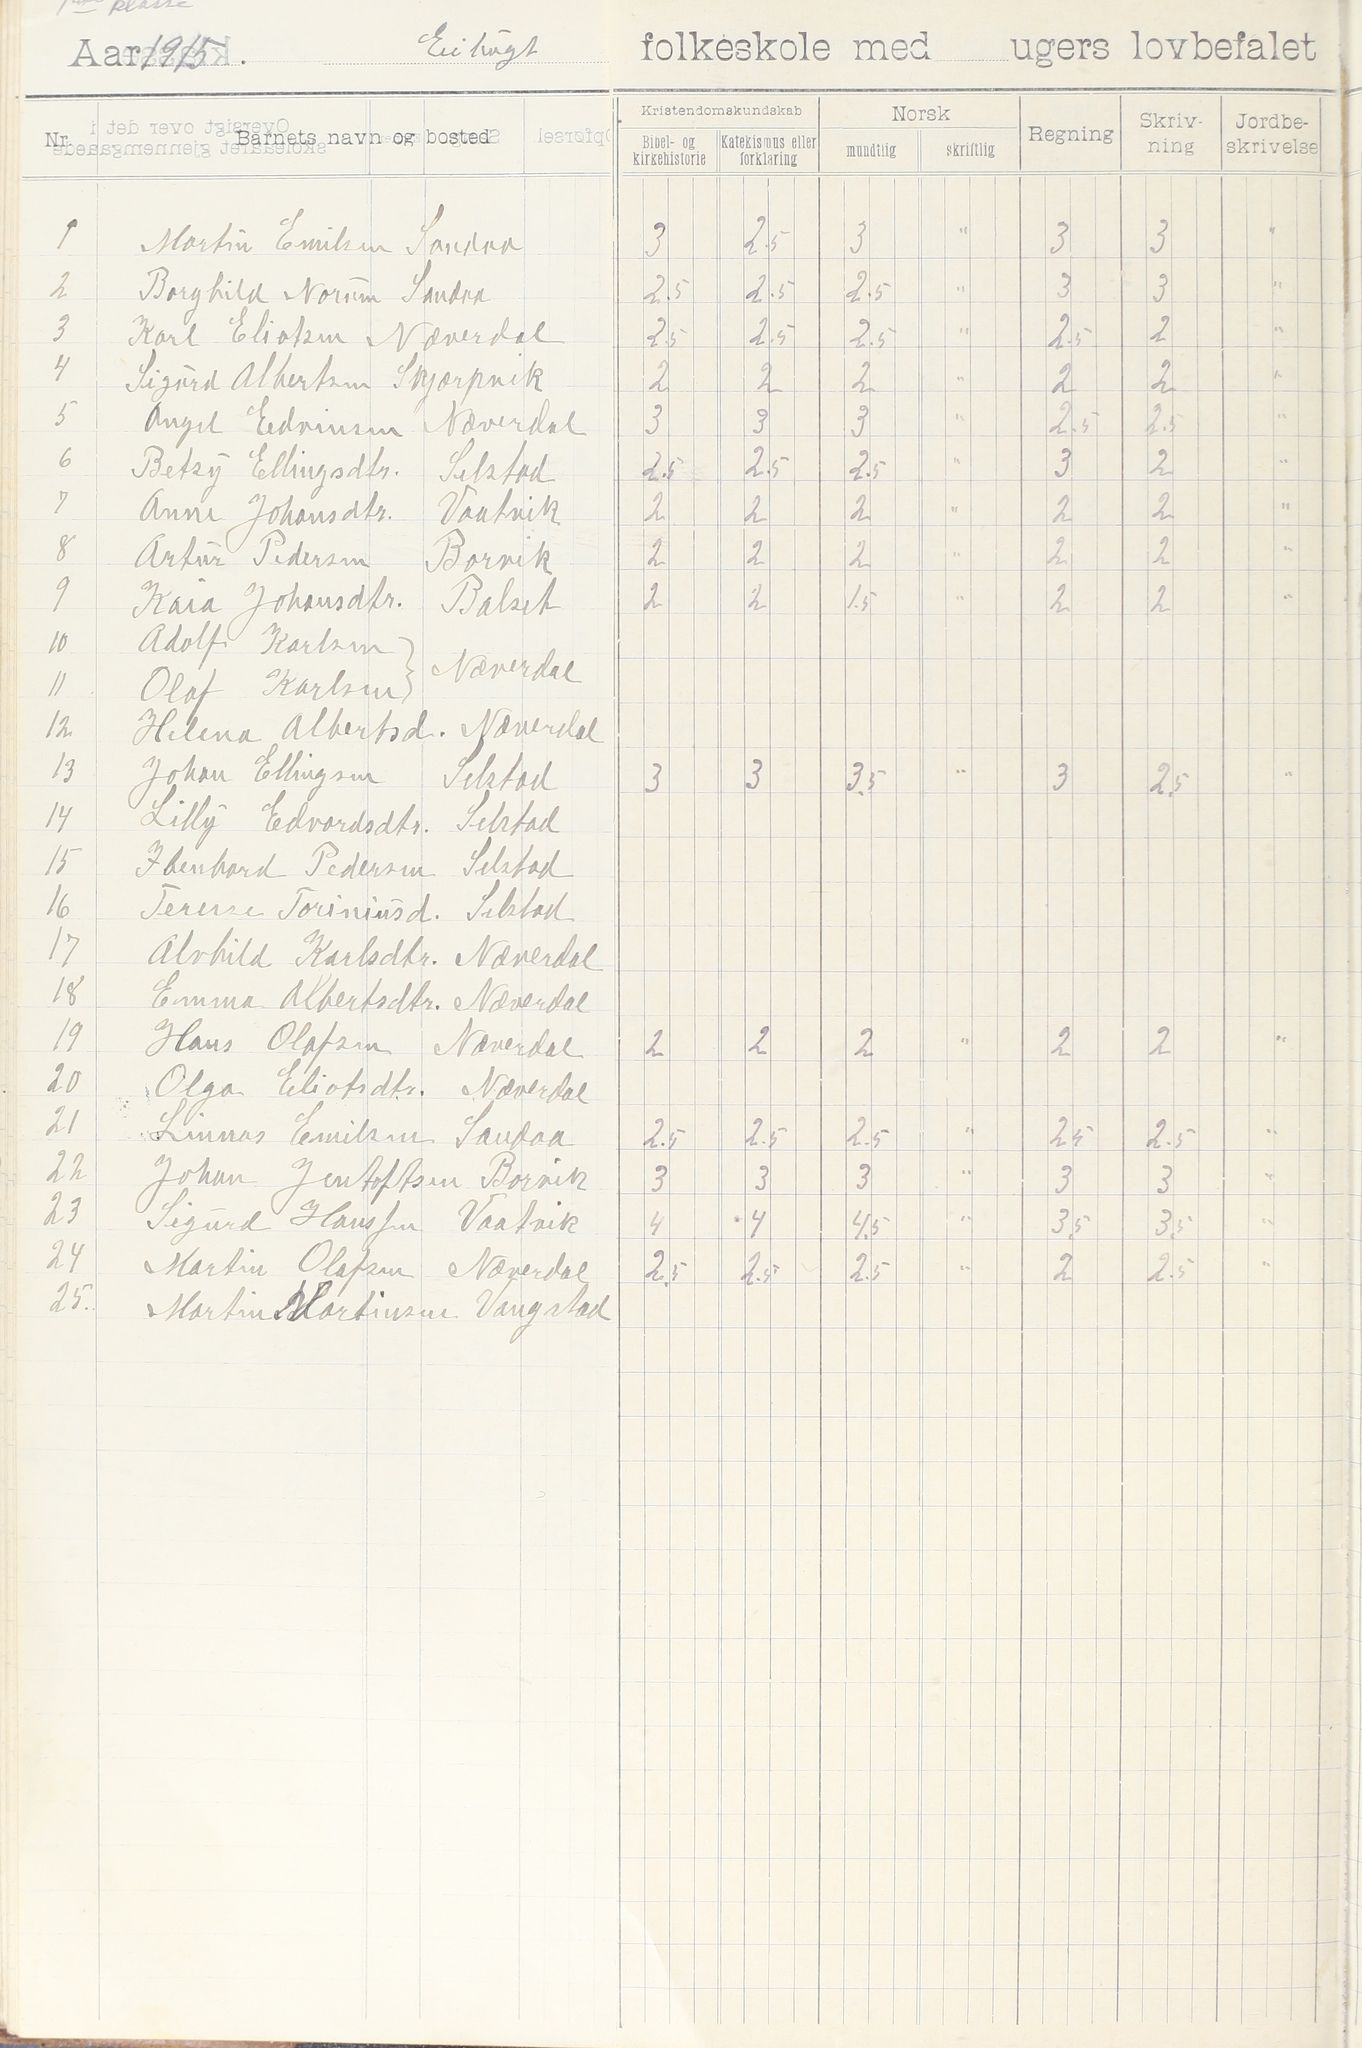 1ste klasse
Aar 1915. Eihugt folkeskole med ugers lovbefalet
Nr. Barnets navn og bosted Kristendomskundskab Norsk Regning Skriv-ning Jordbe-skrivelse
Bibel- og kirkehistorie Katekismus eller forklaring mundtlig skriftlig
1 Martin Emilsen Sandaa 3 2.5 3 " 3 3 "
2 Borghild Norum Sandaa 2.5 2.5 2.5 " 3 3 "
3 Karl Eliotsen Næverdal 2.5 2.5 2.5 " 2.5 2 "
4 Sigurd Albertsen Skjærpvik 2 2 2 " 2 2 "
5 Angel Edvinsen Næverdal 3 3 3 " 2.5 2.5 "
6 Betzy Ellingsdtr. Selstad 2.5 2.5 2.5 " 3 2 "
7 Anne Johansdtr. Vaatvik 2 2 2 " 2 2 "
8 Artur Pedersen Borvik 2 2 2 " 2 2 "
9 Kaia Johansdtr. Balset 2 2 1.5 " 2 2 "
10 Adolf Karlsen
11 Olaf Karlsen } Næverdal
12 Helena Albertsd. Næverdal
13 Johan Ellingsen Selstad 3 3 3.5 " 3 2.5 "
14 Lilly Edvardsdtr. Selstad
15 Ibenhard Pedersen Selstad
16 Terese Toriniusd. Selstad
17 Alvhild Karlsdtr. Næverdal
18 Emma Albertsdtr. Næverdal
19 Hans Olafsen Næverdal 2 2 2 " 2 2 "
20 Olga Eliotsdtr. Næverdal
21 Linnas Emilsen Sandaa 2.5 2.5 2.5 " 2.5 2.5 "
22 Johan Jentoftsen Borvik 3 3 3 " 3 3 "
23 Sigurd Hanssen Vaatvik 4 4 4.5 " 3.5 3.5 "
24 Martin Olafsen Næverdal 2.5 2.5 2.5 " 2 2.5 "
25. Martin Martinsen Vangstad